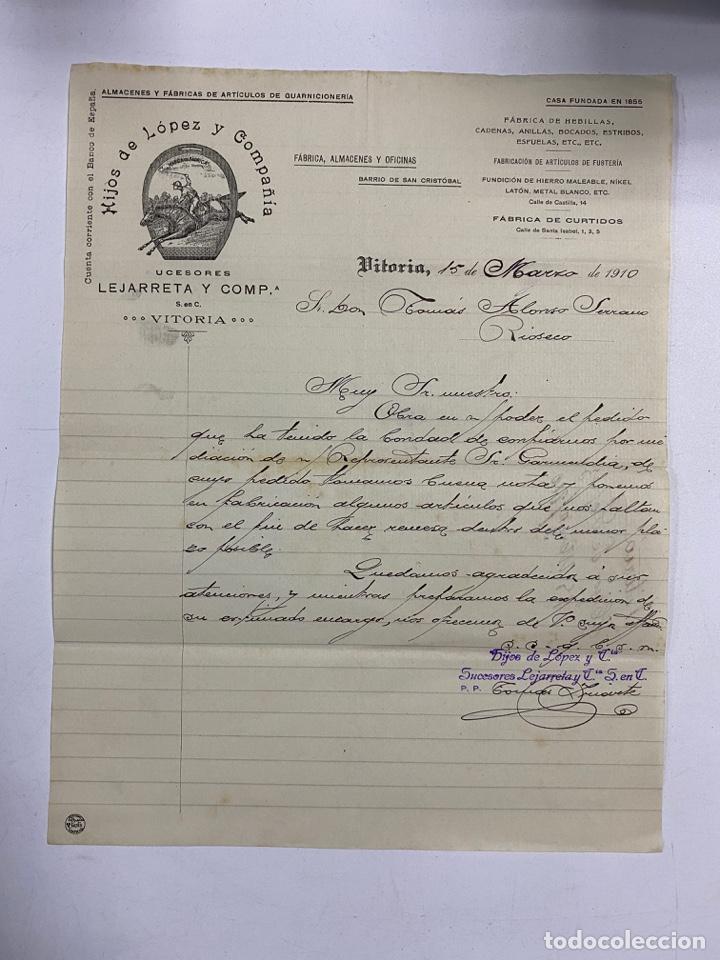 ALMACENES Y FÁBRICAS DE ARTÍCULOS DE GUARNICIONERÍA
CASA FUNDADA EN 1855
Cuenta corriente con el Banco de España.
Hijos de López y Compañía
UCESORES
LEJARRETA Y COMP.A
S. en C.
VITORIA
FÁBRICA, ALMACENES Y OFICINAS
BARRIO DE SAN CRISTÓBAL
FÁBRICA DE HEBILLAS,
CADENAS, ANILLAS, BOCADOS, ESTRIBOS,
ESPUELAS, ETC., ETC.
FABRICACIÓN DE ARTÍCULOS DE FUSTERÍA
FUNDICIÓN DE HIERRO MALEABLE, NÍKEL
LATÓN, METAL BLANCO, ETC.
Calle de Castilla, 14
FÁBRICA DE CURTIDOS
Calle de Santa Isabel, 1, 3, 5
Vitoria, 15 de Marzo de 1910
Sr. Don Tomás Alonso Serrano
Rioseco
Muy Sr. nuestro:
Obra en n/ poder el pedido
que ha tenido la bondad de confiarnos por me
diación de n/ Representante Sr. Garmendia, de
cuyo pedido tomamos buena nota y ponemos
en fabricación algunos artículos que nos faltan
con el fin de hacer remesa dentro del menor pla
zo posible.
Quedamos agradecidos á sus
atenciones, y mientras preparamos la expedición de
su estimado encargo, nos ofrecemos de V. suyos
q. b. s. m.
Hijos de López y Cía
Sucesores Lejarreta y Cía S. en C.
P. P.
todocoleccion